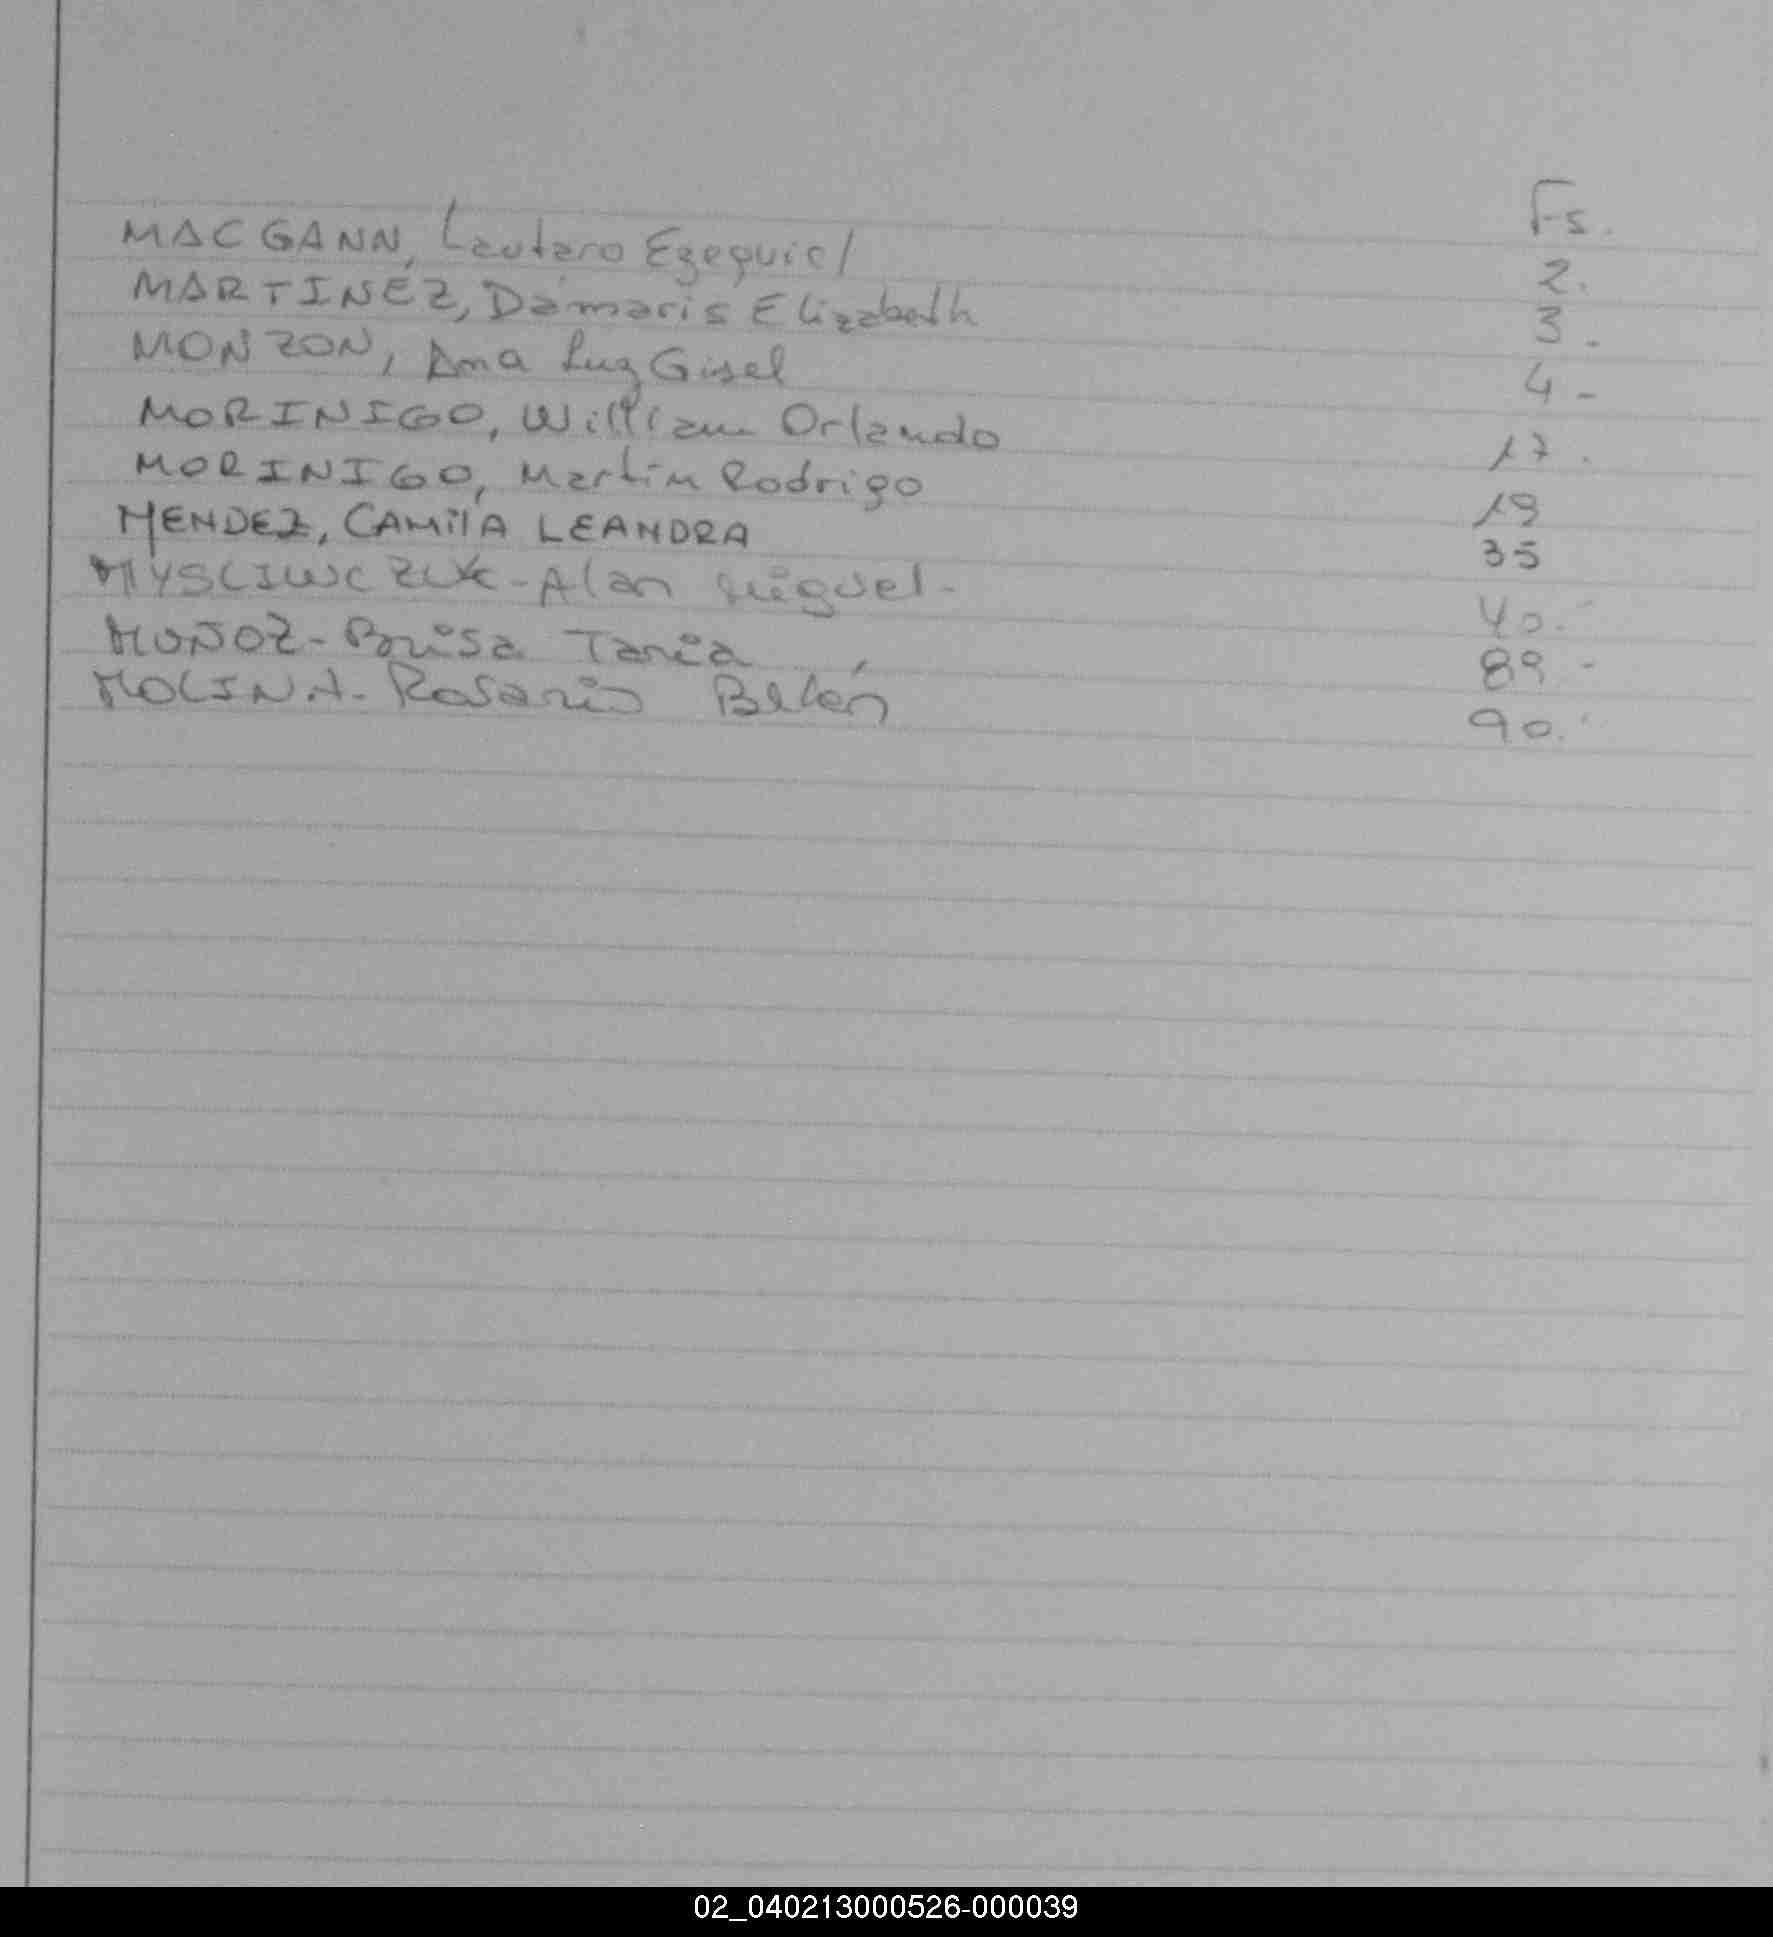 Fs.
MACGANN, Lautaro Ezequiel 2.
MARTINEZ, Dámaris Elizabeth 3.
MONZON, Ana Luz Gisel 4-
MORINIGO, William Orlando 17.
MORINIGO, Martin Rodrigo 19
MENDEZ, CAMilA LEANDRA 35
MYSLIWCZUK-Alan Miguel- 40.-
MUÑOZ-Brisa Tania 89.-
MOLINA-Rosario Belén 90.-
02_040213000526-000039